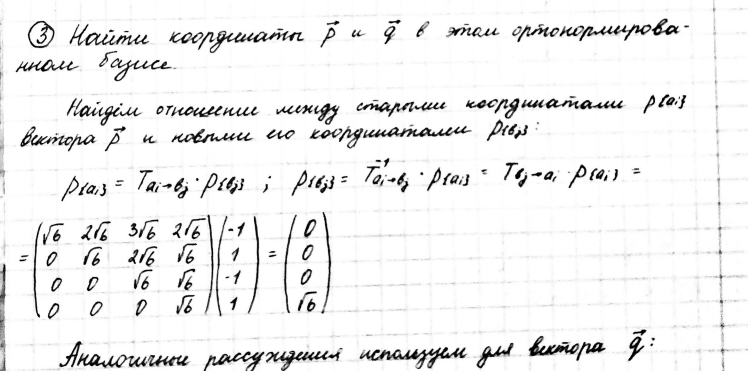 ③ Найти координаты p⃗ и q⃗ в этом ортонормирова-
нном базисе.
Найдём отношение между старыми координатами p{aᵢ}
вектора p⃗ и новыми его координатами p{bⱼ}:
p{aᵢ} = Taᵢ→bⱼ · p{bⱼ} ; p{bⱼ} = T⁻¹aᵢ→bⱼ · p{aᵢ} = Tbⱼ→aᵢ · p{aᵢ} =
= (√6 2√6 3√6 2√6) (-1) = (0)
(0 √6 2√6 √6) (1) (0)
(0 0 √6 √6) (-1) (0)
(0 0 0 √6) (1) (√6)
Аналогичные рассуждения используем для вектора q⃗: